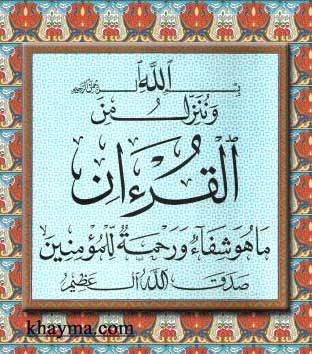 بسم الله الرحمن الرحيم
وَنُنَزِّلُ مِنَ
ٱلْقُرْءَانِ
مَا هُوَ شِفَآءٌ وَرَحْمَةٌ لِّلْمُؤْمِنِينَ
صَدَقَ اللهُ العَظِيمُ
khayma.com